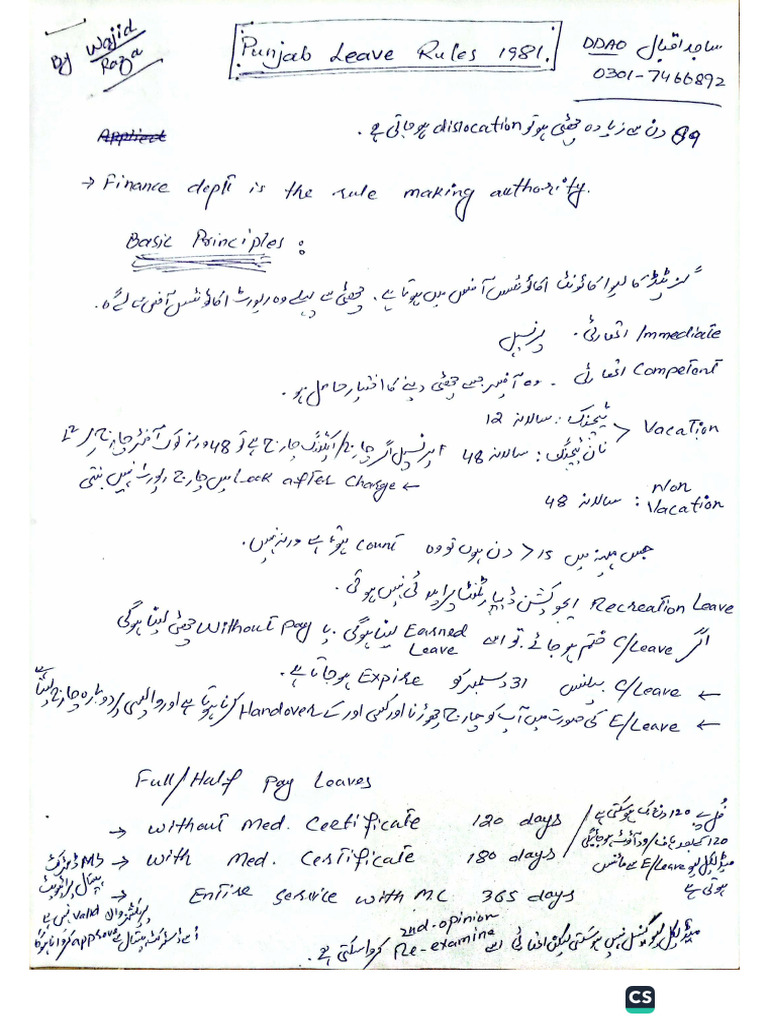 By Wajid Raza
Punjab Leave Rules 1981.
ساجد اقبال DDAO
0301-7466892
Applied
89 دن سے زیادہ چھٹی ہو تو dislocation ہو جاتی ہے۔
→ Finance deptt is the rule making authority.
Basic Principles :
گزیٹڈ کا لیو اکاؤنٹ اکاؤنٹس آفس میں ہوتا ہے۔ چھٹی سے پہلے وہ رپورٹ اکاؤنٹس آفس سے لے گا۔
Immediate اتھارٹی۔ پرنسپل
Competent اتھارٹی۔ وہ آفیسر جسے چھٹی دینے کا اختیار حاصل ہو۔
Vacation < ٹیچنگ : سالانہ 12
نان ٹیچنگ : سالانہ 48 پرنسپل اگر چارج / چارج ہے تو 48 ورنہ 12
← Look after Charge میں چارج رپورٹ نہیں بنتی
Non Vacation : سالانہ 48
جس مہینہ میں 15 > دن ہوں تو وہ count ہوتا ہے ورنہ نہیں۔
Recreation Leave ایجوکیشن ڈیپارٹمنٹ پر اپلائی نہیں ہوتی۔
اگر C/Leave ختم ہو جائے۔ تو اسے Earned Leave لینا ہوگی۔ یا without pay چھٹی لینا ہوگی
← C/Leave بیلنس 31 دسمبر کو Expire ہو جاتا ہے۔
← E/Leave کی صورت میں آپ کو چارج چھوڑنا اور کسی اور کے Handover کرنا ہوتا ہے اور واپسی پر دوبارہ چارج لینا
Full/Half pay Leaves
→ without Med. Certificate 120 days
→ with Med. Certificate 180 days
→ Entire service with M.C 365 days
فل پے 120 دن تک ہو سکتی ہے
120 کے بعد ہاف / ود آؤٹ ہو جائیگی
میڈیکل لیو E/Leave سے مائنس
ہوتی ہے
MS ڈسٹرکٹ
ہسپتال پرائیویٹ
valid نہیں ہے
اسے ڈسٹرکٹ ہسپتال سے approve کروانا ہوگا
میڈیکل لیو کینسل نہیں ہو سکتی لیکن اتھارٹی اسے 2nd-opinion Re-examine کروا سکتی ہے۔
CS